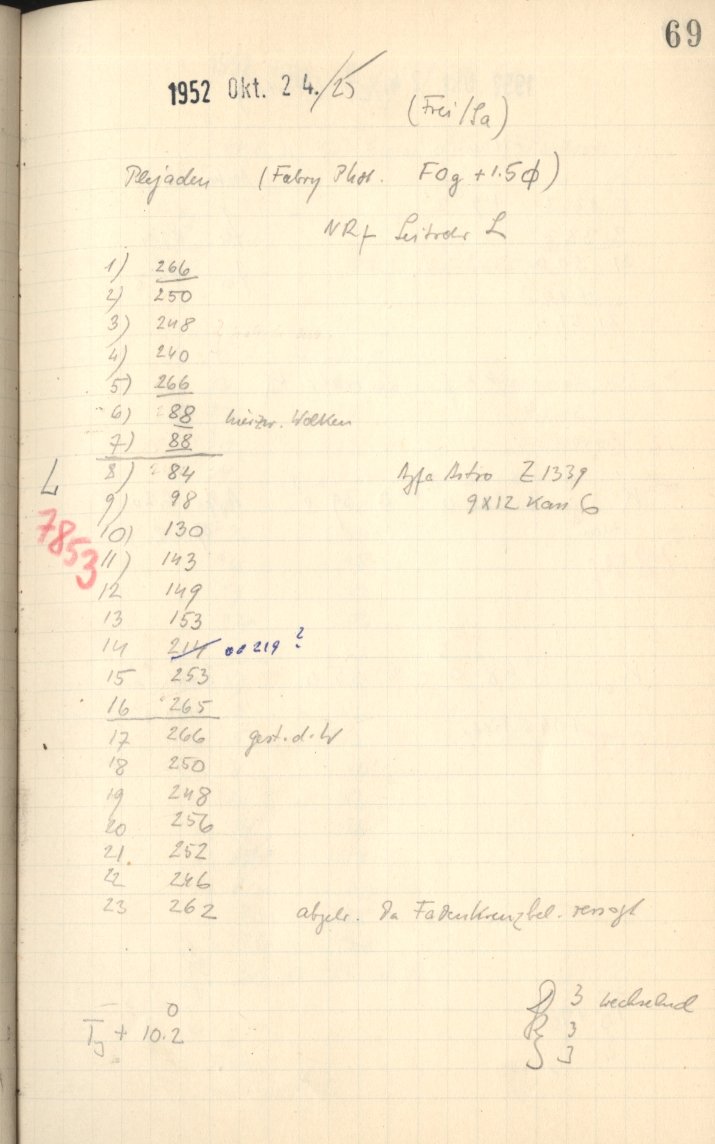 69
1952 Okt. 24./25
(Frei/Sa)
Plejaden (Fabry Phot. FOg + 1.5ϕ)
NRf L
1) 266
2) 250
3) 248
4) 240
5) 266
6) 88 Wolken
7) 88
L 8) 84 Agfa Astro Z 1339
9) 98 9x12 Kass 6
7853
10) 130
11) 143
12 149
13 153
14 214 219 ?
15 253
16 265
17 266 gest. d. W
18 250
19 248
20 256
21. 252
22 246
23 262 abgebr. Da Fadenkreuzbel. versagt
0
+ 10.2
3 wechselnd
R 3
S 3